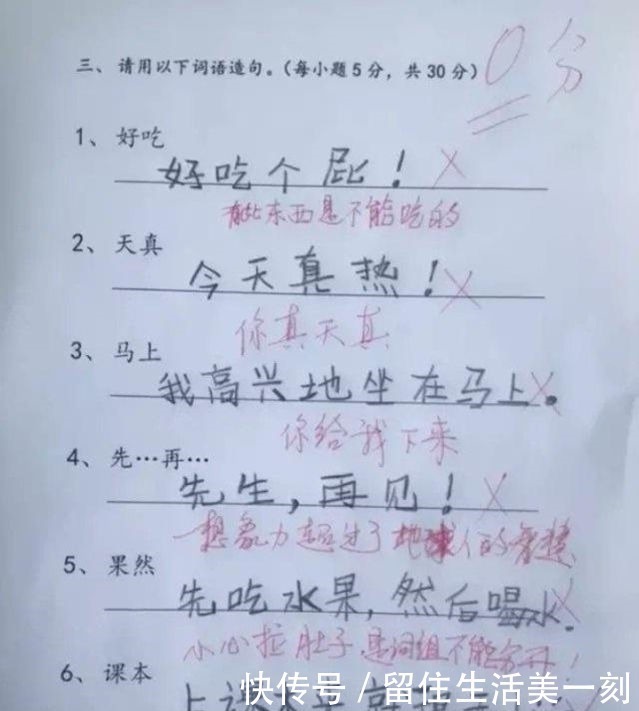 三、请用以下词语造句。(每小题5分，共30分)
0分
1、好吃
好吃个屁！
东西是不能吃的
2、天真
今天真热！
你真天真
3、马上
我高兴地坐在马上。
你给我下来
4、先…再…
先生，再见！
想象力超过了地球人的
5、果然
先吃水果，然后喝水。
小心拉肚子 是词组不能分开！
6、课本
快传号/留住生活美一刻